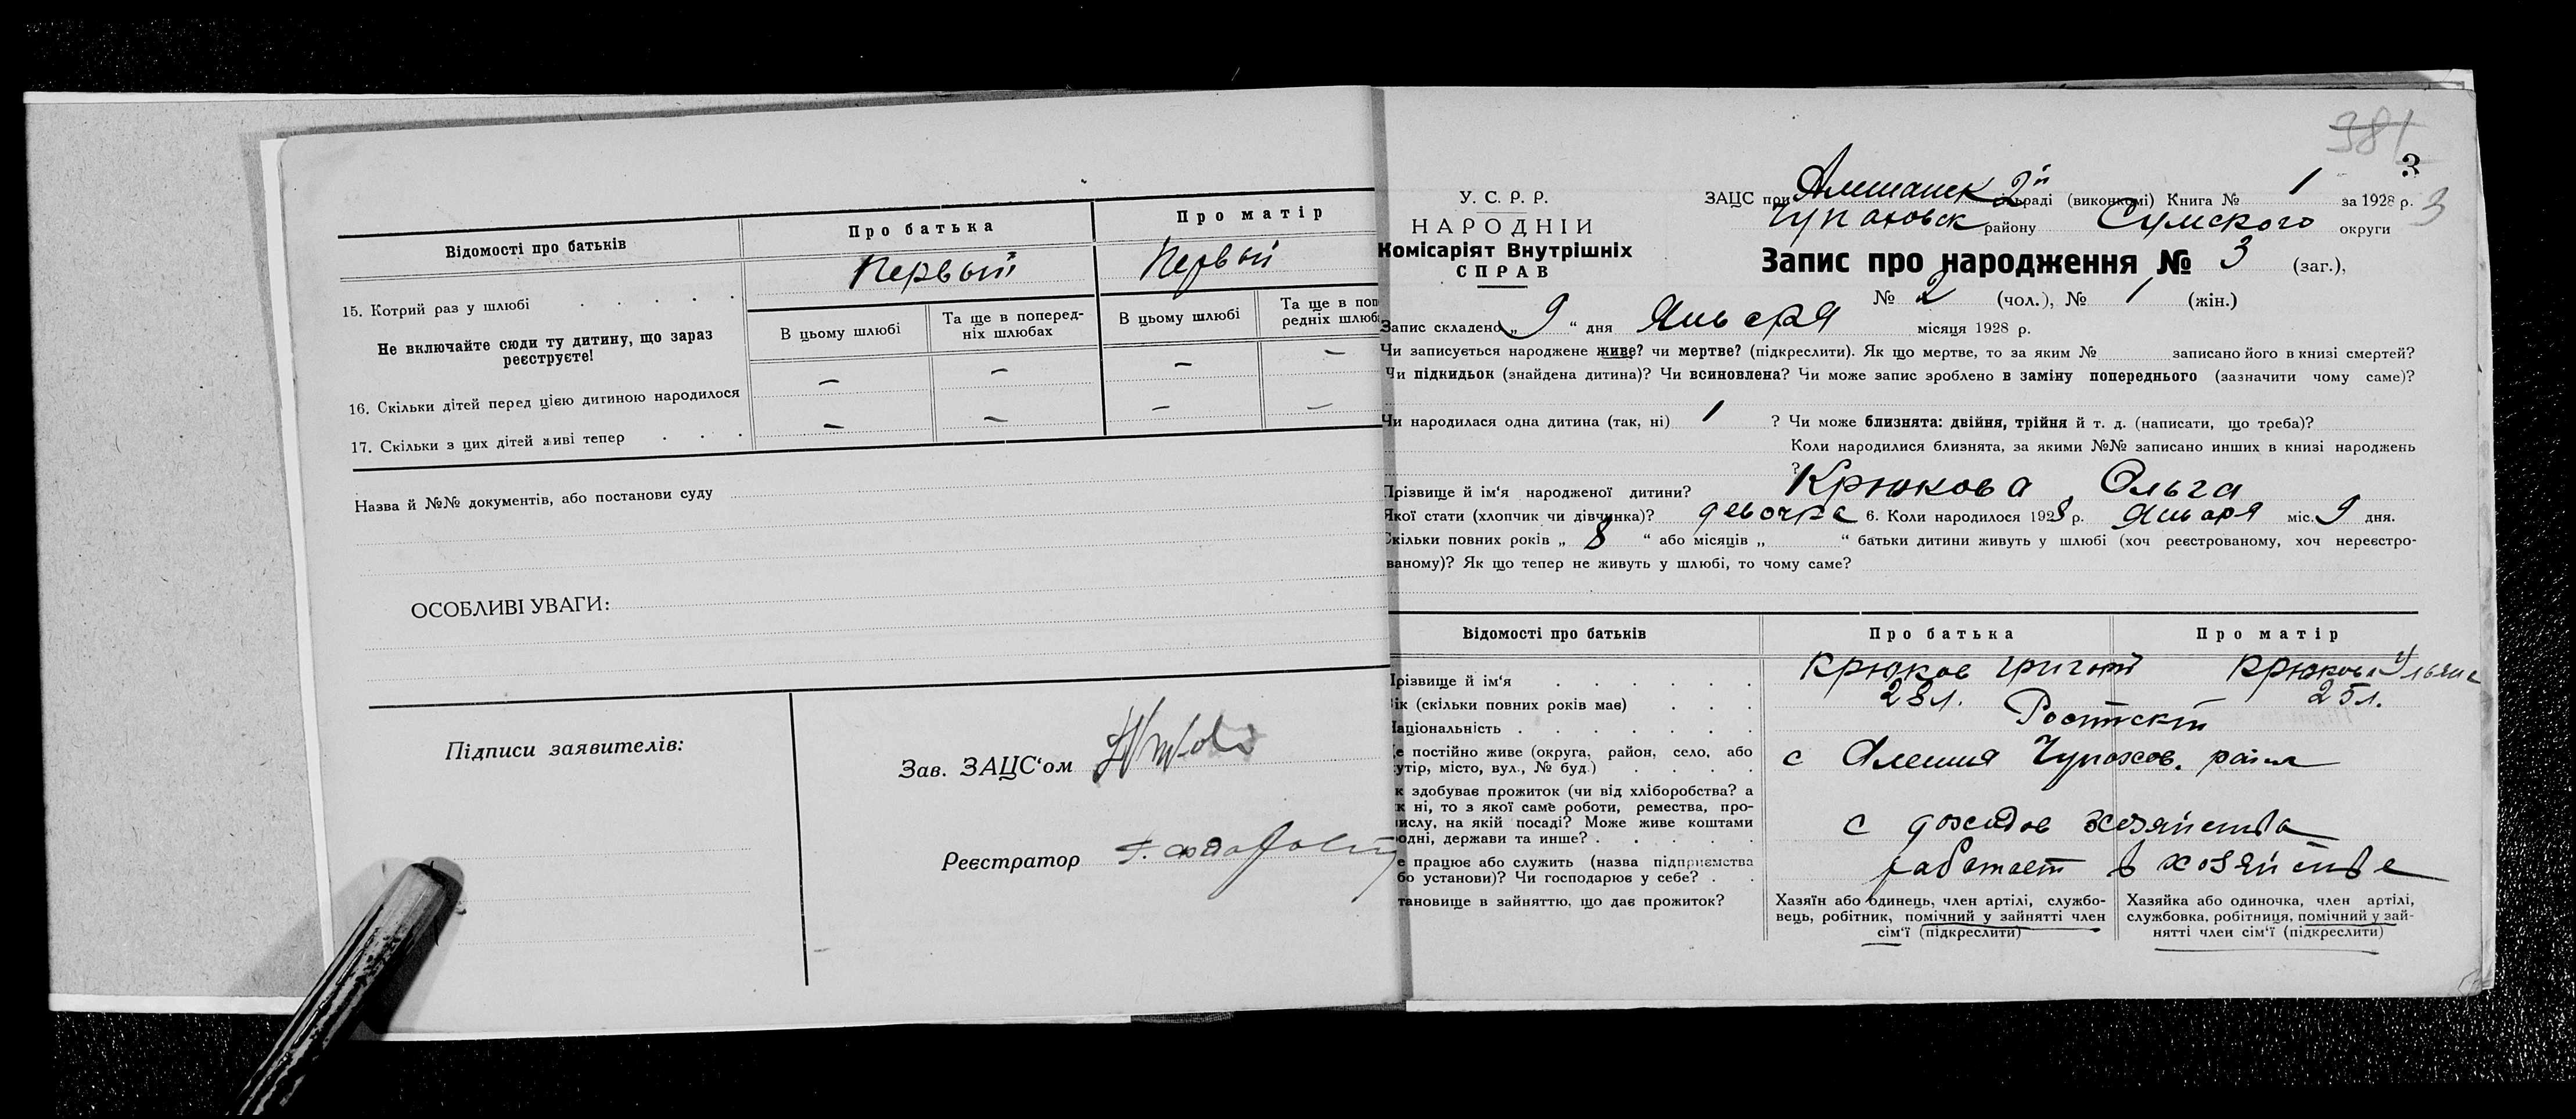 Відомості про батьків
Про батька
Про матір
15. Котрий раз у шлюбі
Первый
Первый
Не включайте сюди ту дитину, що зараз
реєструєте!
В цьому шлюбі
Та ще в поперед-
ніх шлюбах
В цьому шлюбі
Та ще в поп
редніх шлюб
16. Скільки дітей перед цією дитиною народилося — — — —
17. Скільки з цих дітей живі тепер — — — —
Назва й №№ документів, або постанови суду
ОСОБЛИВІ УВАГИ:
Підписи заявителів:
Зав. ЗАЦС‘ом
Реєстратор
381
3
3
У. С. Р. Р.
НАРОДНІЙ
Комісаріят Внутрішніх
СПРАВ
ЗАЦС при Алешанск 2й раді (виконкомі) Книга № 1 за 1928 р.
Чупаховск району Сумского округи
Запис про народження № 3 (заг.),
№ 2 (чол.), № 1 (жін.)
Запис складено „ 9 “ дня Января місяця 1928 р.
Чи записується народжене живе? чи мертве? (підкреслити). Як що мертве, то за яким № записано його в книзі смертей?
Чи підкидьок (знайдена дитина)? Чи всиновлена? Чи може запис зроблено в заміну попереднього (зазначити чому саме)?
Чи народилася одна дитина (так, ні) 1 ? Чи може близнята: двійня, трійня й т. д. (написати, що треба)?
Коли народилися близнята, за якими №№ записано инших в книзі народжень
?
Прізвище й ім‘я народженої дитини? Крюкова Ольга
Якої стати (хлопчик чи дівчинка)? девочка 6. Коли народилося 1928 р. Января міс. 9 дня.
Скільки повних років „ 8 “ або місяців „ “ батьки дитини живуть у шлюбі (хоч реєстрованому, хоч нереєстро-
ваному)? Як що тепер не живуть у шлюбі, то чому саме?
Відомості про батьків
Про батька
Про матір
Прізвище й ім‘я
Крюков Григорий
Крюкова Ульяна
ік (скільки повних років має)
28 л.
25 л.
аціональність
е постійно живе (округа, район, село, або
утір, місто, вул., № буд.)
с Алешня Чупахов. района
к здобуває прожиток (чи від хліборобства? а
к ні, то з якої саме роботи, ремества, про-
ислу, на якій посаді? Може живе коштами
одні, держави та инше?
с доходов хозяйства
е працює або служить (назва підприємства
бо установи)? Чи господарює у себе?
работает в хозяйстве
тановище в зайняттю, що дає прожиток?
Хазяїн або одинець, член артілі, службо-
вець, робітник, помічний у зайнятті член
сім‘ї (підкреслити)
Хазяйка або одиночка, член артілі,
службовка, робітниця, помічний у зай-
нятті член сім‘ї (підкреслити)